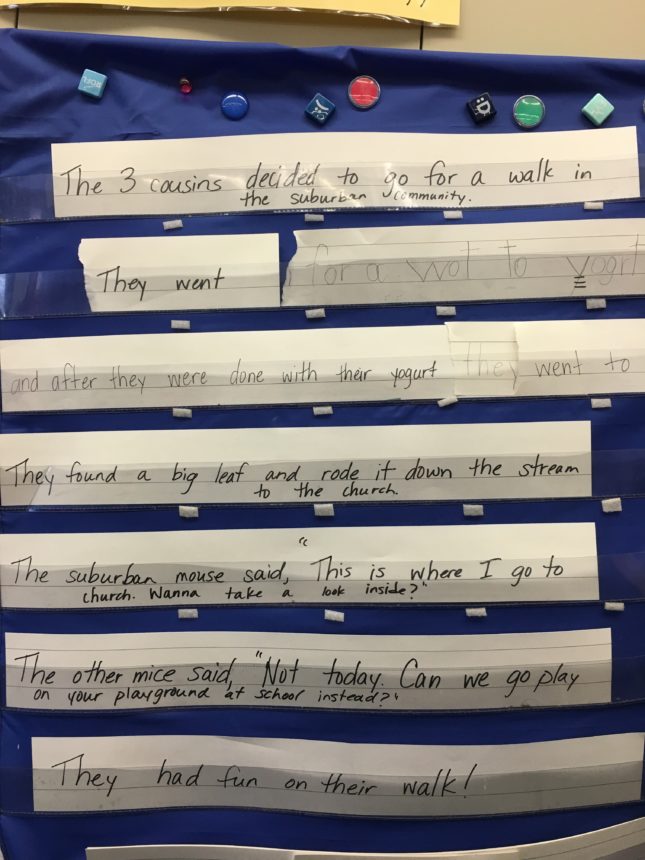 The 3 cousins decided to go for a walk in
the suburban community.
They went for a wot to yogrt
and after they were done with their yogurt they went to
They found a big leaf and rode it down the stream
to the church.
The suburban mouse said, "This is where I go to
church. Wanna take a look inside?"
The other mice said, "Not today. Can we go play
on your playground at school instead?"
They had fun on their walk!